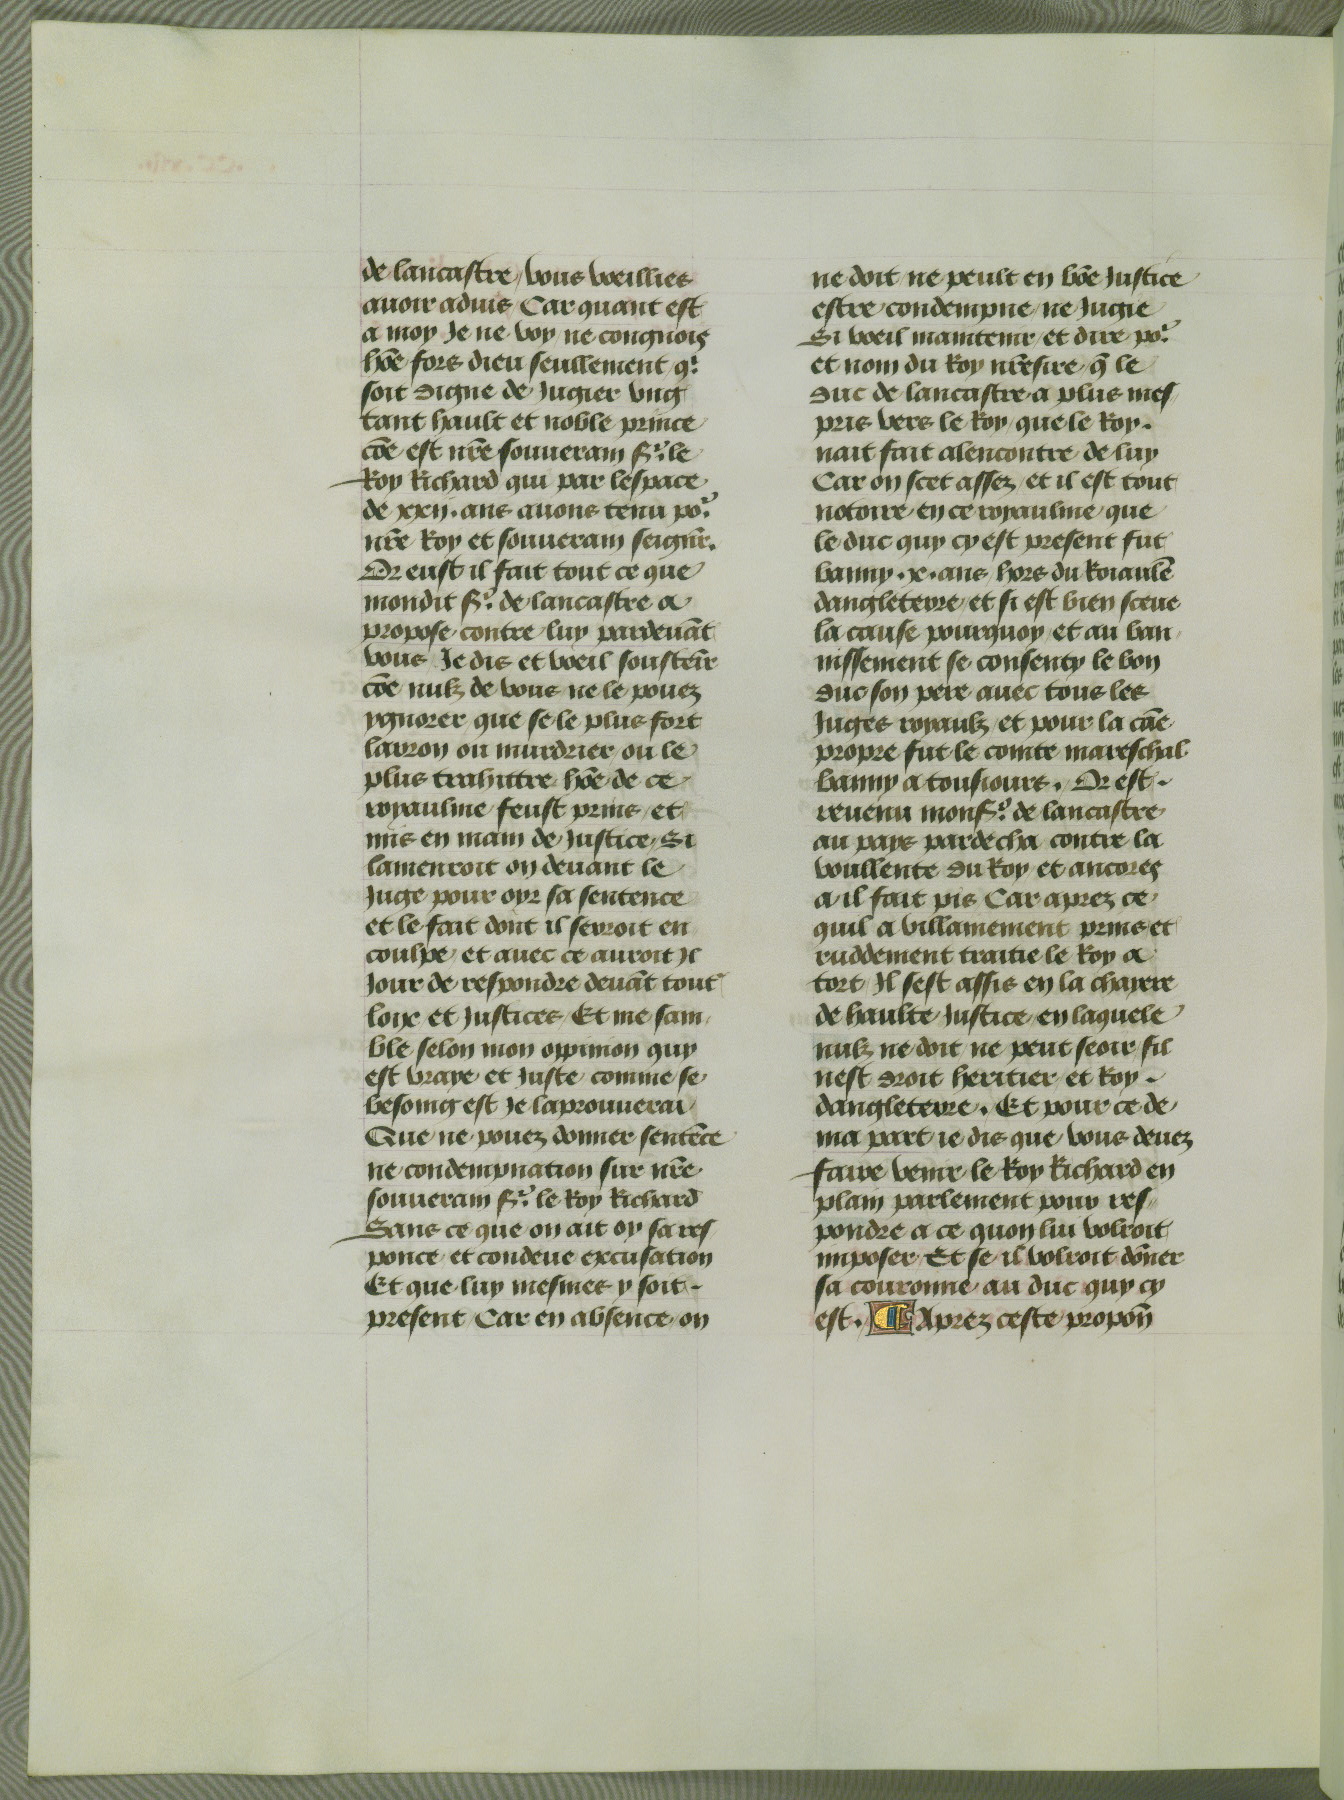 de lancastre / vous voeillies
auoir aduis Car quant est
a moy Je ne voy ne congnois
hōe fors dieu seullement qͥ
soit digne de Jugier vng
tant hault et noble prince
cōe est nr̄e souuerain sʳ. le
Roy Richard qui par lespace
de xxij. ans auons tenu poʳ
nr̄e Roy et souuerain seignr̄.
Or eust il fait tout ce que
mondit sʳ. de lancastre a
propose contre luy pardeuāt
vous Je dis et voeil soustēir
cōe nulz de vous ne le pouez
ygnorer que se le plus fort
larron ou murdrier ou le
plus trahittre hōe de ce
royaulme feust prins et
mis en main de Justice / Si
lamenroit on deuant le
Juge pour oyr sa sentence
et le fait dont il seroit en
coulpe et auec ce auroit Jl
Jour de respondre deuāt tout
loix et Justices Et me sam
ble selon mon oppinion quy
est vraye et Juste comme se
besoing est Je laprouuerai
Que ne pouez donner sentēce
ne condempnation sur nr̄e
souuerain sʳ. le Roy Richard
Sans ce que on ait oy sa res
ponce et condeue excusation
Et que luy mesmes y soit -
present / Car en absence on
ne doit ne peult en bōe Justice
estre condempne ne Jugie
Si voeil maintenir et dire poʳ
et nom du Roy nr̄e sire q̄ le
duc de lancastre a plus mes
pris vers le Roy que le Roy.
nait fait alencontre de luy
Car on scet assez et il est tout
notoire en ce royaulme que
le duc quy cy est present fut
banny .x. ans hors du Roiaulē
dangleterre et si est bien sceue
la cause pourquoy et au ban
nissement se consenty le bon
duc son pere auec tous les
Juges royaulz et pour la cāe
propre fut le comte mareschal
banny a tousiours. Or est -
reuenu monsʳ. de lancastre
au pays pardecha contre la
voullente du Roy et ancores
a il fait pis Car aprez ce
quil a villainement prins et
ruddement traitie le Roy a
tort Jl sest assis en la chayere
de haulte Justice en laquele
nulz ne doit ne peut seoir sil
nest droit heritier et Roy -
dangleterre. Et pour ce de
ma part ie dis que vous deuez
faire venir le Roy Richard en
plain parlement pour res
pondre a ce quon lui volroit
imposer Et se il volroit dōner
sa couronne au duc quy cy
est. ¶ Aprez ceste propoñ